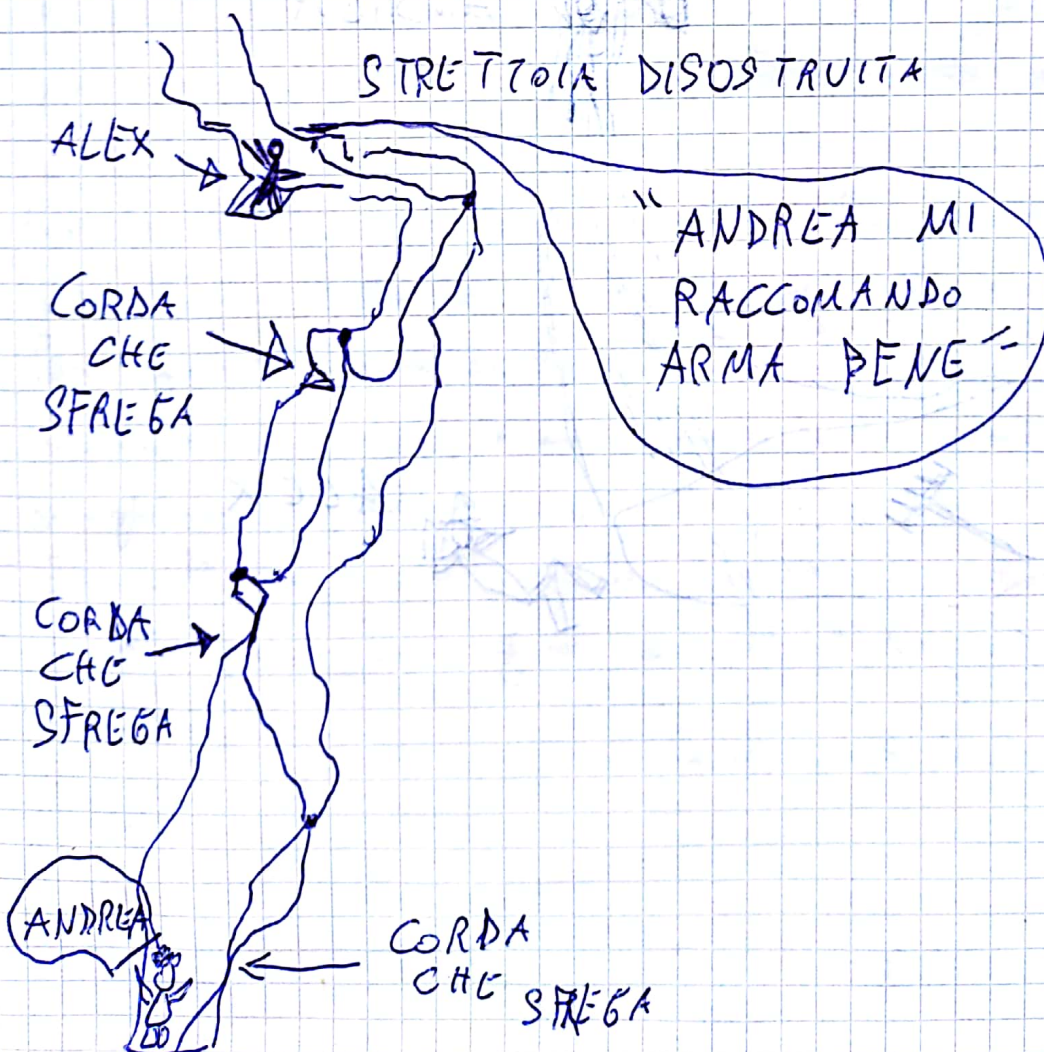 STRETTOIA DISOSTRUITA
ALEX
"ANDREA MI
RACCOMANDO
ARMA BENE"
CORDA
CHE
SFREGA
CORDA
CHE
SFREGA
ANDREA
CORDA
CHE
SFREGA